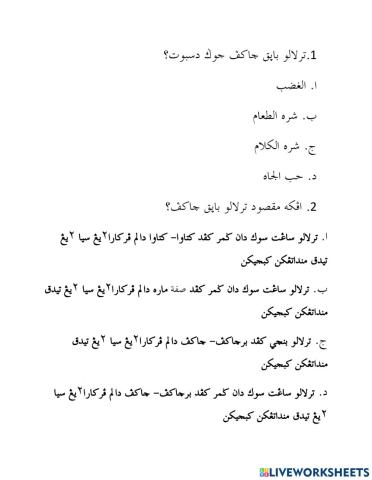 1.ترلالو بايق جاكڤ جوݢ دسبوت؟
ا. الغضب
ب. شره الطعام
ج. شره الكلام
د. حب الجاه
2. اڤكه مقصود ترلالو بايق جاكڤ؟
ا. ترلالو ساڠت سوك دان ݢمر كڤد كتاوا– كتاوا دالم ڤركارا٢يڠ سيا ٢يڠ
تيدق منداتڠكن كبجيكن
ب. ترلالو ساڠت سوك دان ݢمر كڤد صفة ماره دالم ڤركارا٢يڠ سيا ٢يڠ تيدق
منداتڠكن كبجيكن
ج. ترلالو بنچي كڤد برجاكڤ– جاكڤ دالم ڤركارا٢يڠ سيا ٢يڠ تيدق
منداتڠكن كبجيكن
د. ترلالو ساڠت سوك دان ݢمر كڤد برجاكڤ– جاكڤ دالم ڤركارا٢يڠ سيا
٢يڠ تيدق منداتڠكن كبجيكن
LIVEWORKSHEETS